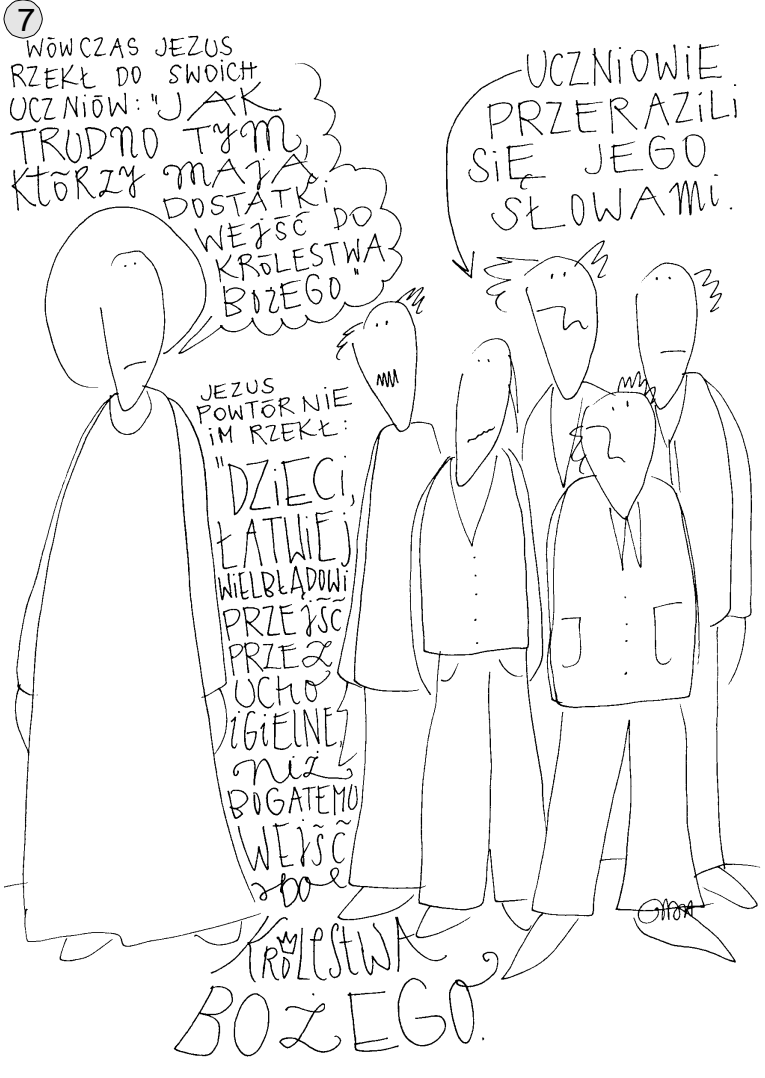 7
WÓWCZAS JEZUS
RZEKŁ DO SWOICH
UCZNIÓW: "JAK
TRUDNO TYM,
KTÓRZY MAJĄ
DOSTATKI
WEJŚĆ DO
KRÓLESTWA
BOŻEGO"
UCZNIOWIE
PRZERAZILI
SIĘ JEGO
SŁOWAMI.
JEZUS
POWTÓRNIE
IM RZEKŁ:
"DZIECI,
ŁATWIEJ
WIELBŁĄDOWI
PRZEJŚĆ
PRZEZ
UCHO
IGIELNE,
NIŻ
BOGATEMU
WEJŚĆ
DO
KRÓLESTWA
BOŻEGO.